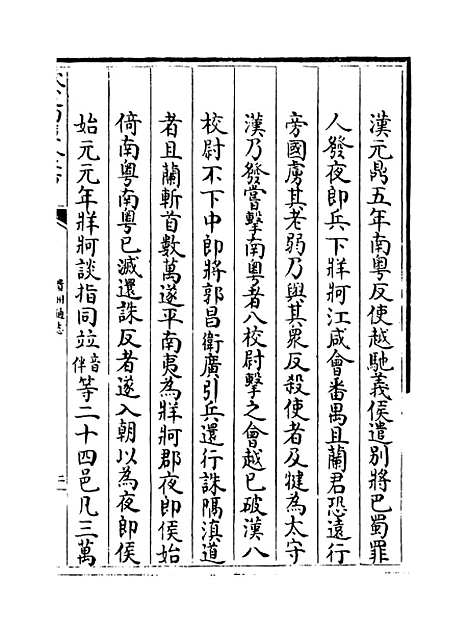 漢元鼎五年南粤反使越馳義侯遣别將巴蜀罪
人發夜郎兵下牂牁江咸會番禺且蘭君恐遠行
旁國虜其老弱乃與其衆反殺使者及犍為太守
漢乃發嘗擊南粤者八校尉擊之會越已破漢八
校尉不下中郎將郭昌衛廣引兵還行誅隔滇道
者且蘭斬首數萬遂平南夷為牂牁郡夜郎侯始
倚南粤南粤已滅還誅反者遂入朝以為夜郎侯
始元元年牂牁談指同竝音伴等二十四邑凡三萬